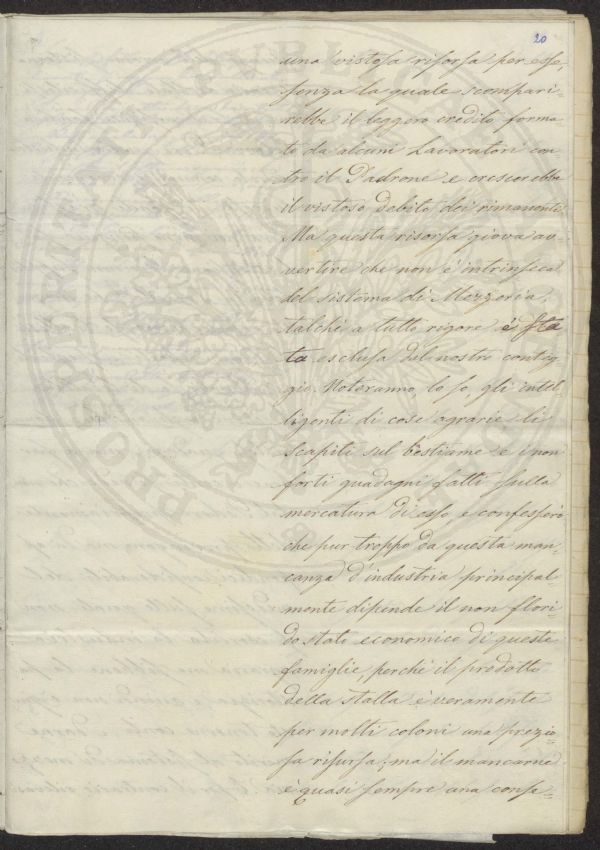 20
una vistosa risorsa per esse,
senza la quale scompari-
rebbe il leggero credito forma
to da alcuni Lavoratori con
tro il Padrone e crescerebbe
il vistoso debito dei rimanenti.
Ma questa risorsa giova av-
vertire che non è intrinseca
del sistema di Mezzeria,
talchè a tutto rigore è sta
ta esclusa dal nostro conteg
gio. Noteranno, lo so, gli intel-
ligenti di cose agrarie li
scapiti sul bestiame e i non
forti guadagni fatti sulla
mercatura di esso, e confesserò
che pur troppo da questa man-
canza d'industria principal
mente dipende il non flori-
do stato economico di queste
famiglie, perchè il prodotto
della stalla è veramente
per molti coloni una prezio-
sa risorsa; ma il mancarne
è quasi sempre una conse-